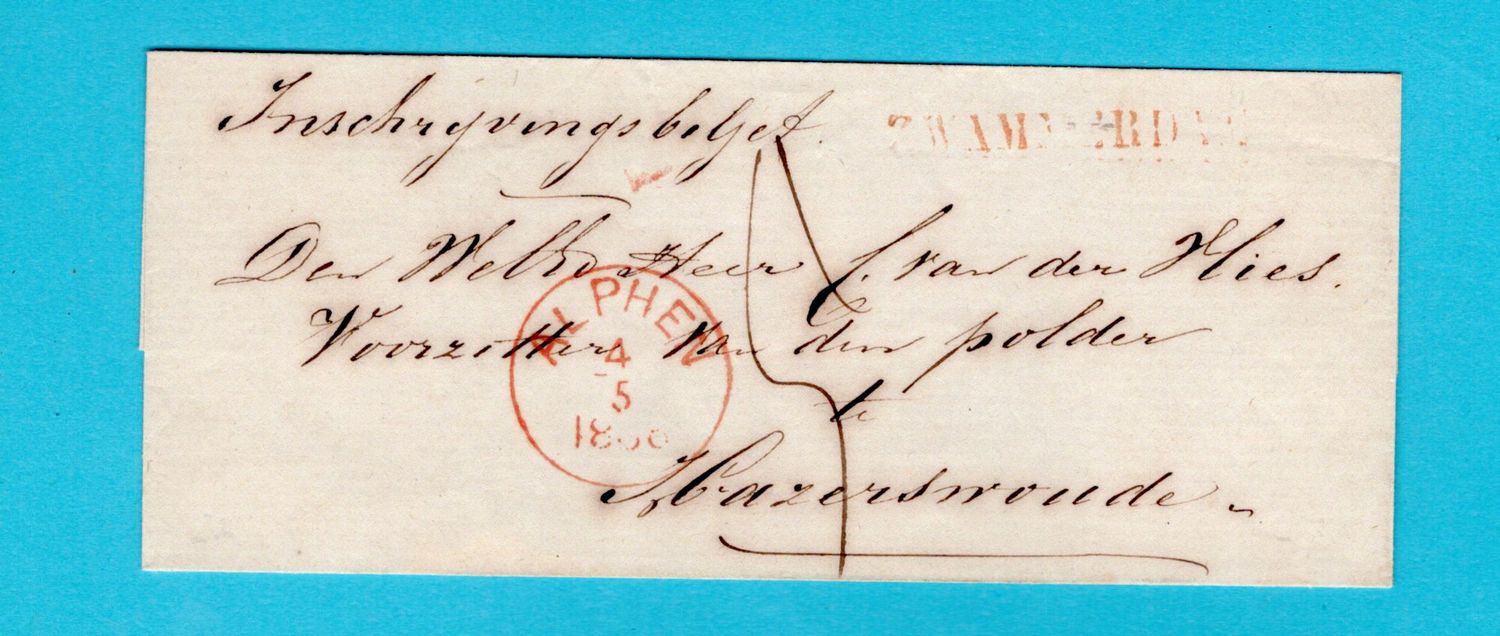 Inschrijvingsbiljet.
ZWAMMERDAM
Den WelEd Heer C. van der Hies.
Voorzitter van den polder
te
Hazerswoude
ALPHEN
4
5